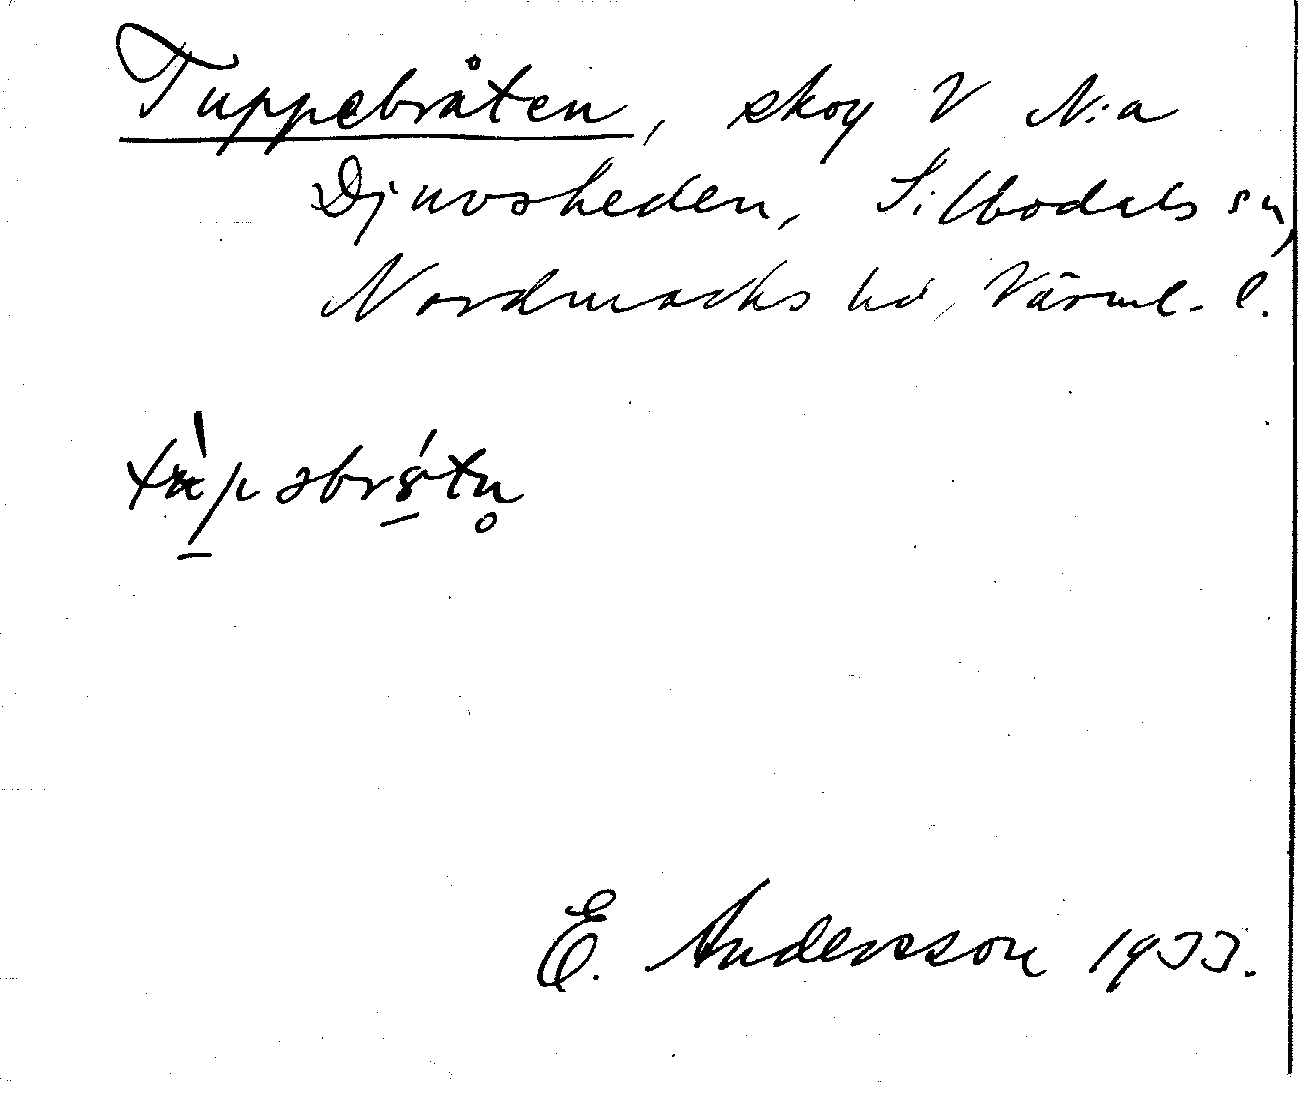 Tuppebråten, skog V N:a
Djuvsheden, Silbodals sn,
Nordmarks hd, Värml. l.
E. Andersson 1933.